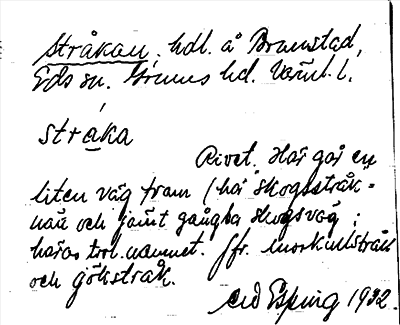 Stråkan, hdl. å Bramstad,
Eds sn. Grums hd. Värml. l.
stråka
Rivet. Här går en
liten väg fram (här skogsstråk
och jämt gångbar skogsväg;
härav trol. namnet. Jfr.
och gökstråk.
1932.